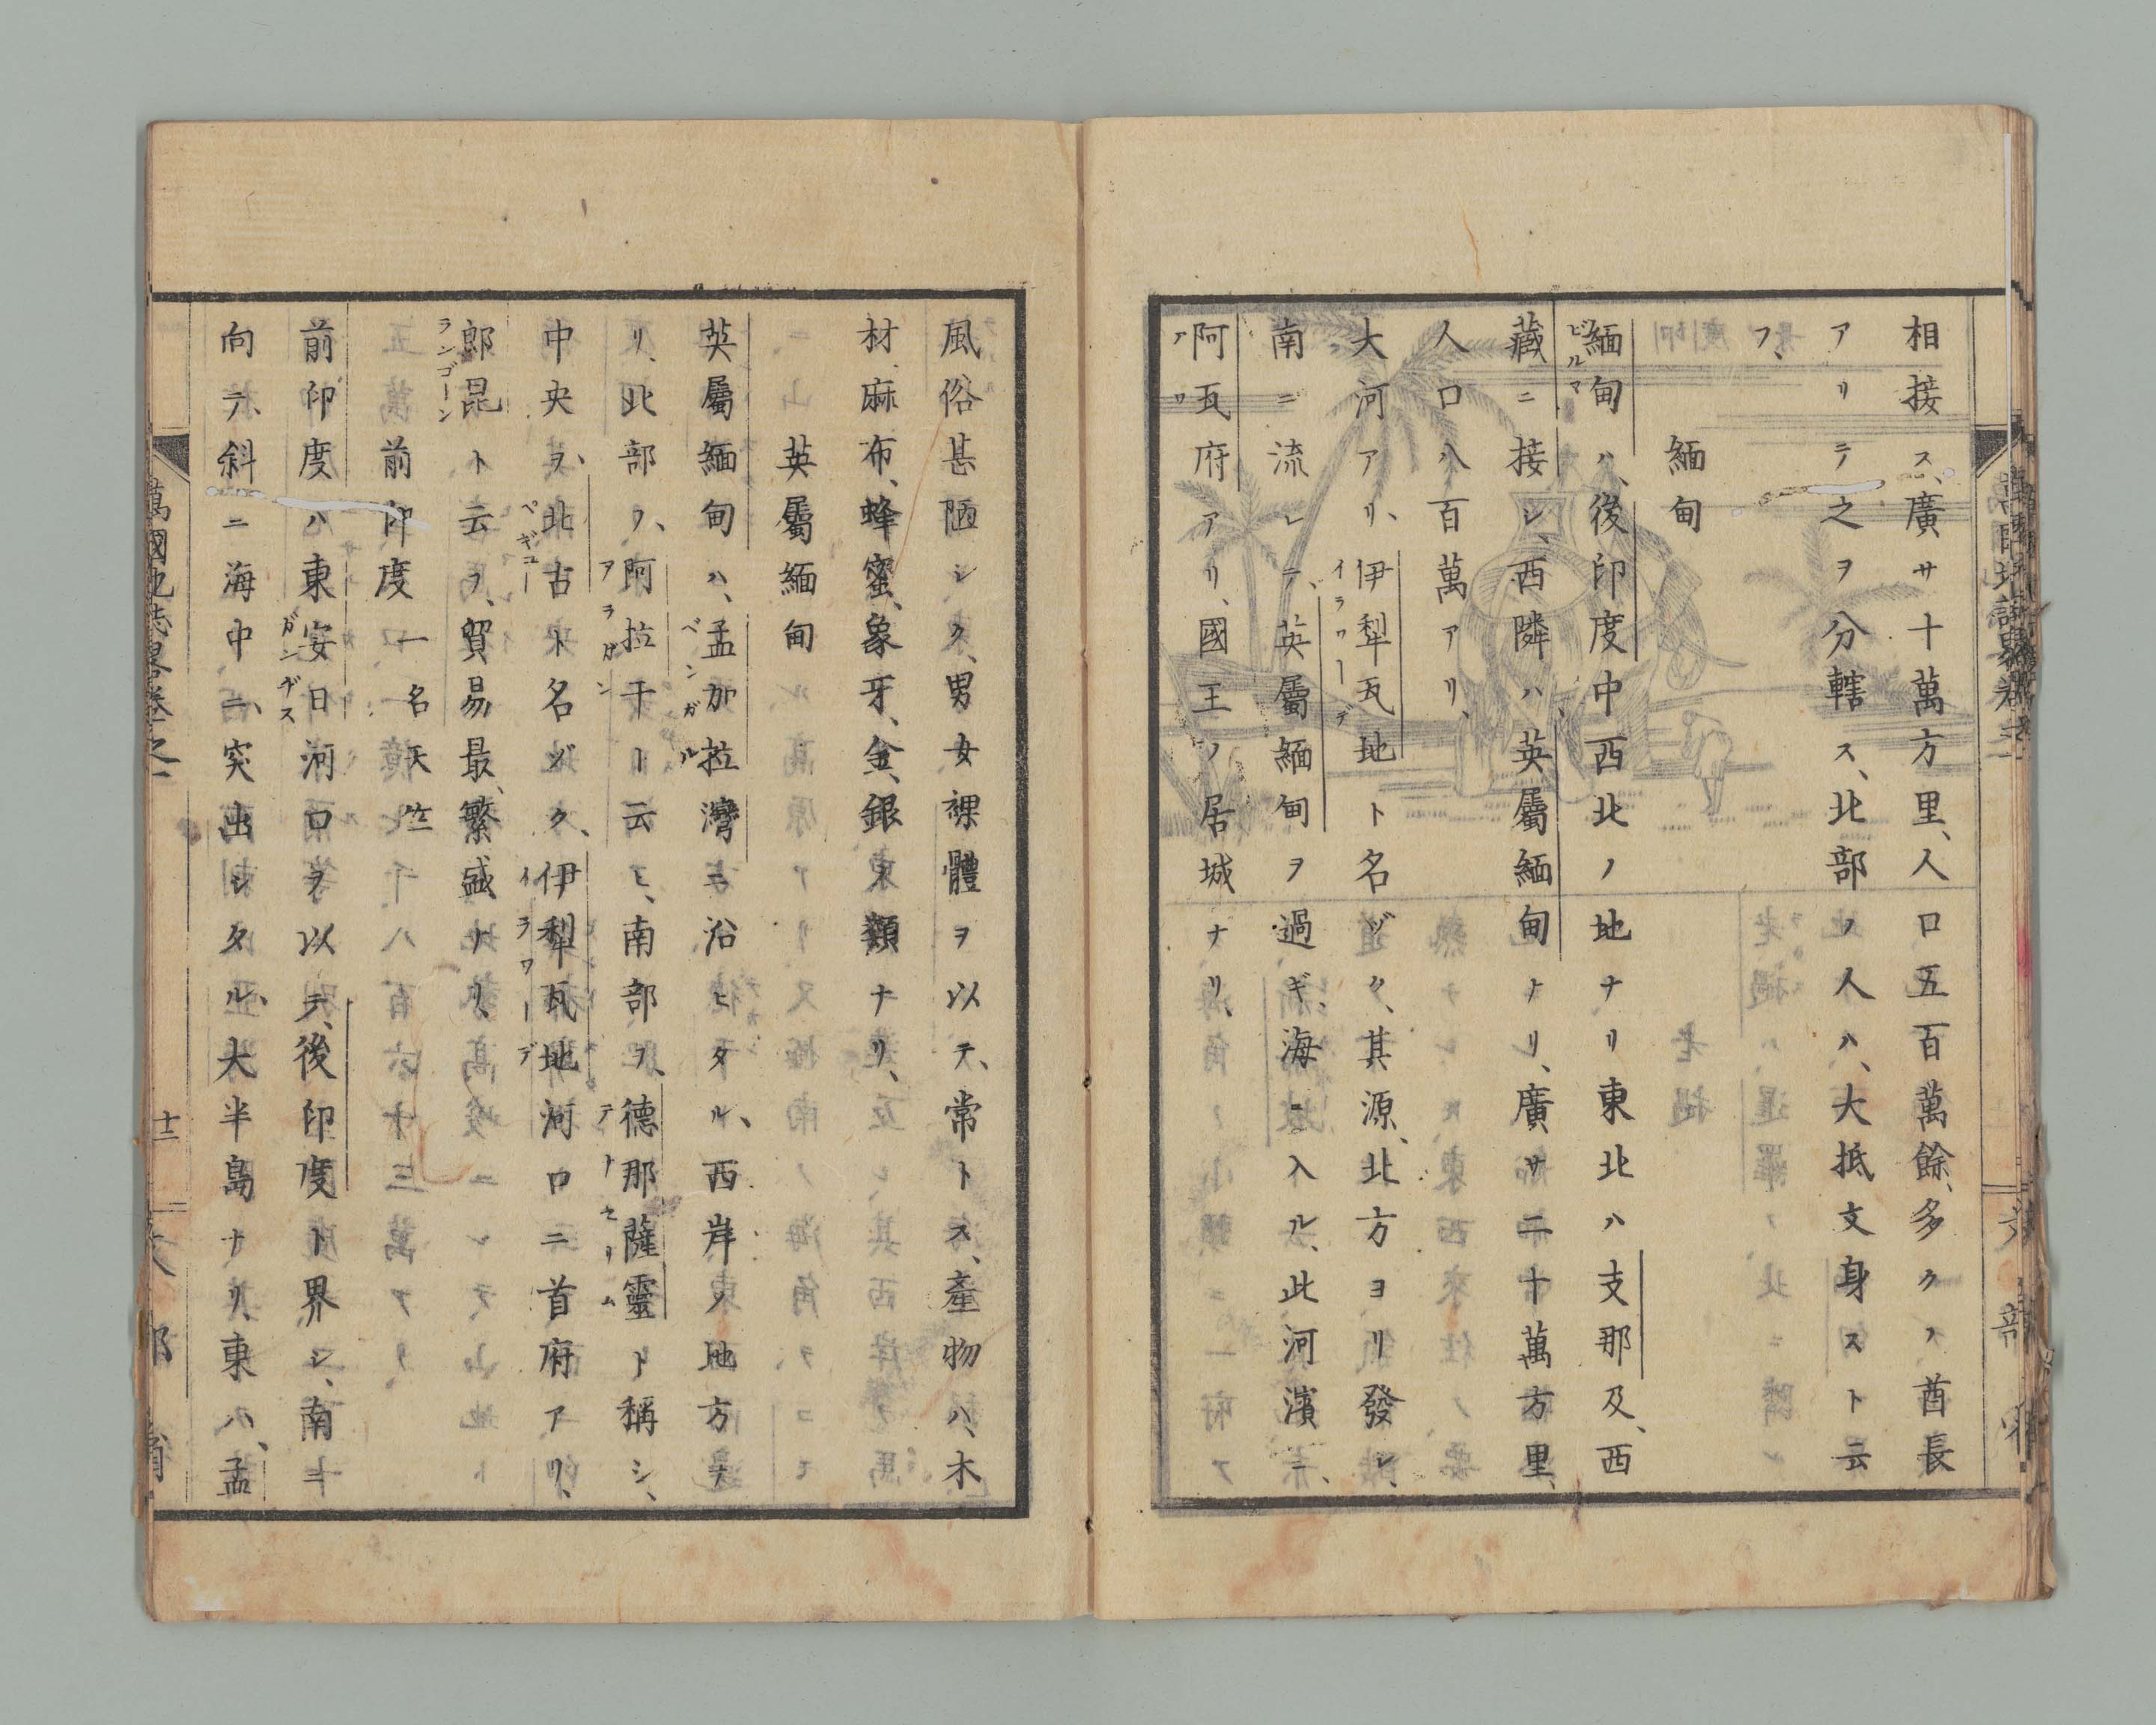 相接ス、廣サ十萬方里、人口五百萬餘、多クノ酋長
アリテ之ヲ分轄ス、北部ノ人ハ、大抵文身スト云
フ、
緬甸
緬甸ハ、後印度中西北ノ地ナリ東北ハ支那及、西
ビルマ
藏ニ接シ、西隣ハ、英屬緬甸ナリ、廣サ二十萬方里、
人口八百萬アリ、
大河アリ、伊犁瓦地ト名ヅク、其源、北方ヨリ發シ、
イラワーデ
南ニ流レテ、英屬緬甸ヲ過ギ、海ニ入ル、此河濱ニ、
阿瓦府アリ、國王ノ居城ナリ、
アワ
風俗甚陋シク、男女裸體ヲ以テ、常トス、產物ハ、木
材、麻布、蜂蜜、象牙、金、銀、東類ナリ、
英屬緬甸
英屬緬甸ハ、孟加拉灣ニ沿ヒタル、西岸ノ地方ナ
ベンガル
リ、北部ヲ、阿拉干ト云ヒ、南部ヲ、德那薩靈ト稱シ、
アラカン
テナセリム
中央ヲ、北古ト名ヅク、伊犁瓦地河口ニ首府アリ、
ペギュー
イラワーデ
郎昆ト云フ、貿易最、繁盛ナリ、
ランゴーン
前印度 一名天竺
前印度ハ東、安日河口ヲ以テ、後印度ト界シ、南ニ
ガンヂス
向テ、斜ニ海中ニ、突出シタル、大半島ナリ、東ハ、孟
萬國地誌畧卷之一
十二
文部省